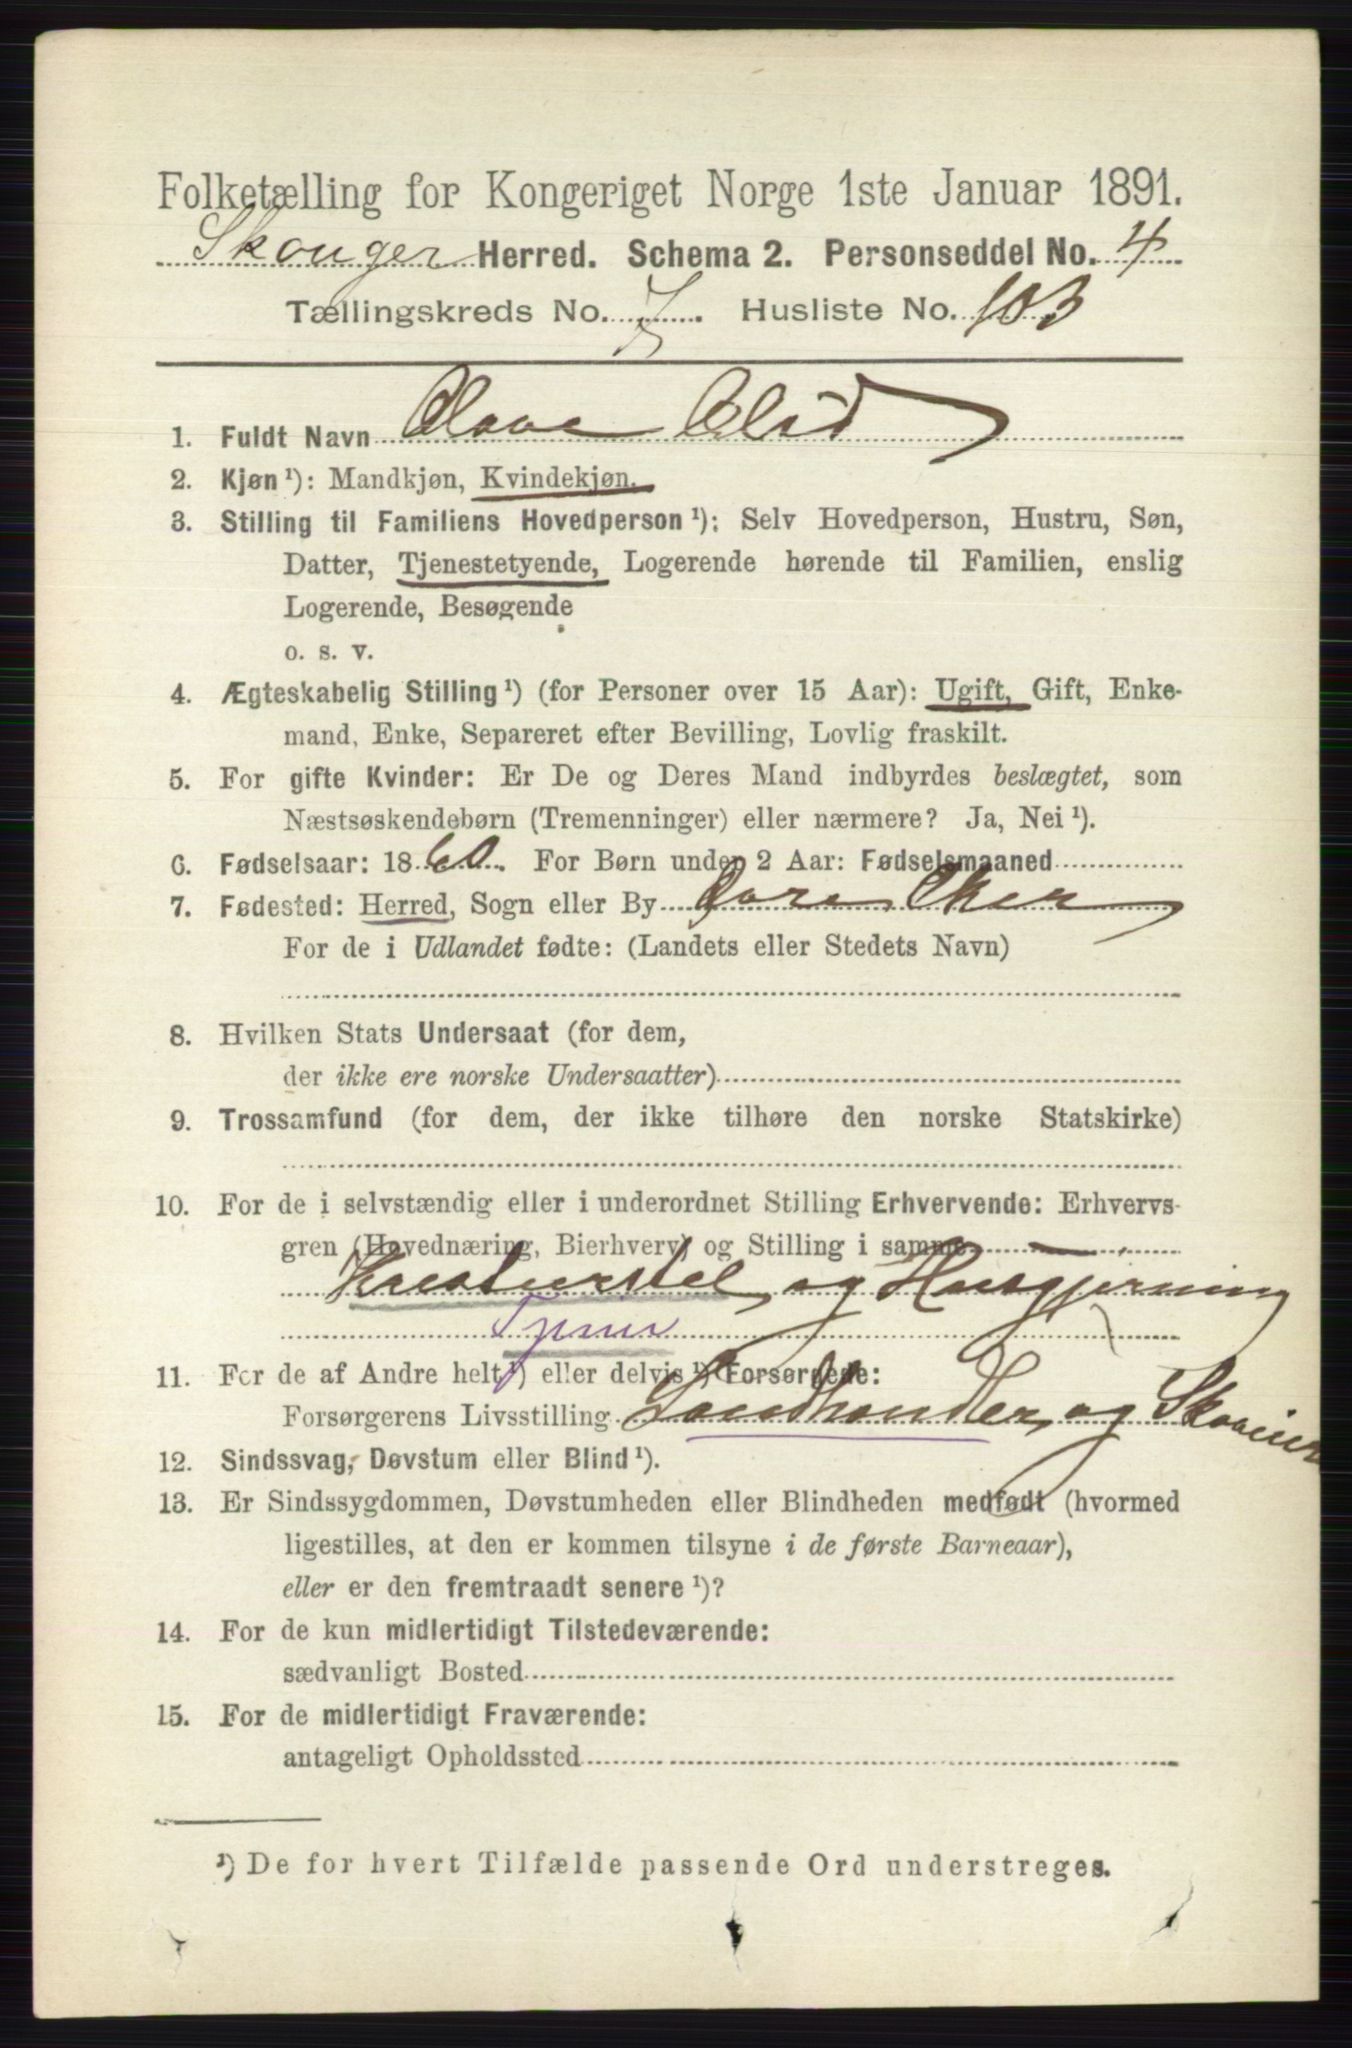 Folketælling for Kongeriget Norge 1ste Januar 1891.
Skouger Herred. Schema 2. Personseddel No. 4
Tællingskreds No. 7. Husliste No. 103
1. Fuldt Navn
2. Kjøn ¹): Mandkjøn, Kvindekjøn.
3. Stilling til Familiens Hovedperson ¹): Selv Hovedperson, Hustru, Søn,
Datter, Tjenestetyende, Logerende hørende til Familien, enslig
Logerende, Besøgende
o. s. v.
4. Ægteskabelig Stilling ¹) (for Personer over 15 Aar): Ugift, Gift, Enke-
mand, Enke, Separeret efter Bevilling, Lovlig fraskilt.
5. For gifte Kvinder: Er De og Deres Mand indbyrdes beslægtet, som
Næstsøskendebørn (Tremenninger) eller nærmere? Ja, Nei ¹).
6. Fødselsaar: 1860. For Børn under 2 Aar: Fødselsmaaned
7. Fødested: Herred, Sogn eller By Øvre Eker
For de i Udlandet fødte: (Landets eller Stedets Navn)
8. Hvilken Stats Undersaat (for dem,
der ikke ere norske Undersaatter)
9. Trossamfund (for dem, der ikke tilhøre den norske Statskirke)
10. For de i selvstændig eller i underordnet Stilling Erhvervende: Erhvervs-
gren (Hovednæring, Bierhverv) og Stilling i samme
Kreaturstel og Husgjerning
Tjener
11. For de af Andre helt ¹) eller delvis ¹) Forsørgede:
Forsørgerens Livsstilling Landhandler og Skoveier
12. Sindssvag, Døvstum eller Blind ¹).
13. Er Sindssygdommen, Døvstumheden eller Blindheden medfødt (hvormed
ligestilles, at den er kommen tilsyne i de første Barneaar),
eller er den fremtraadt senere ¹)?
14. For de kun midlertidigt Tilstedeværende:
sædvanligt Bosted
15. For de midlertidigt Fraværende:
antageligt Opholdssted
¹) De for hvert Tilfælde passende Ord understreges.